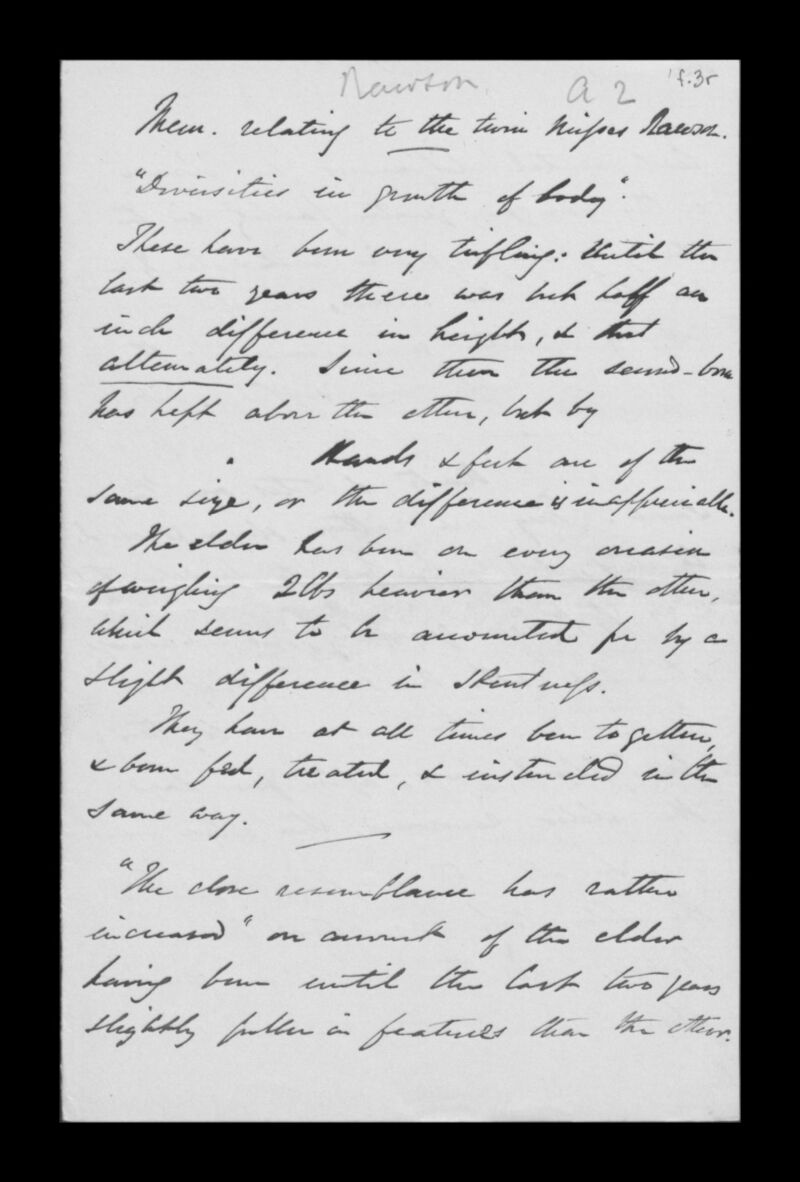 Rawson.
A 2
f.3r
Mem. relating to the twin Misses Rawson.
"Diversities in growth of body".
These have been very trifling: Until the
last two years there was but half an
inch difference in height, & that
alternately. Since then the second-born
has kept above the other, but by
Hands & feet are of the
same size, or the difference is inappreciable.
The elder has been on every occasion
of weighing 2lbs heavier than the other,
which seems to be accounted for by a
slight difference in stoutness.
They have at all times been together,
& been fed, treated, & instructed in the
same way.
"The close resemblance has rather
increased" on account of the elder
having been until the last two years
slightly fuller in features than the other.